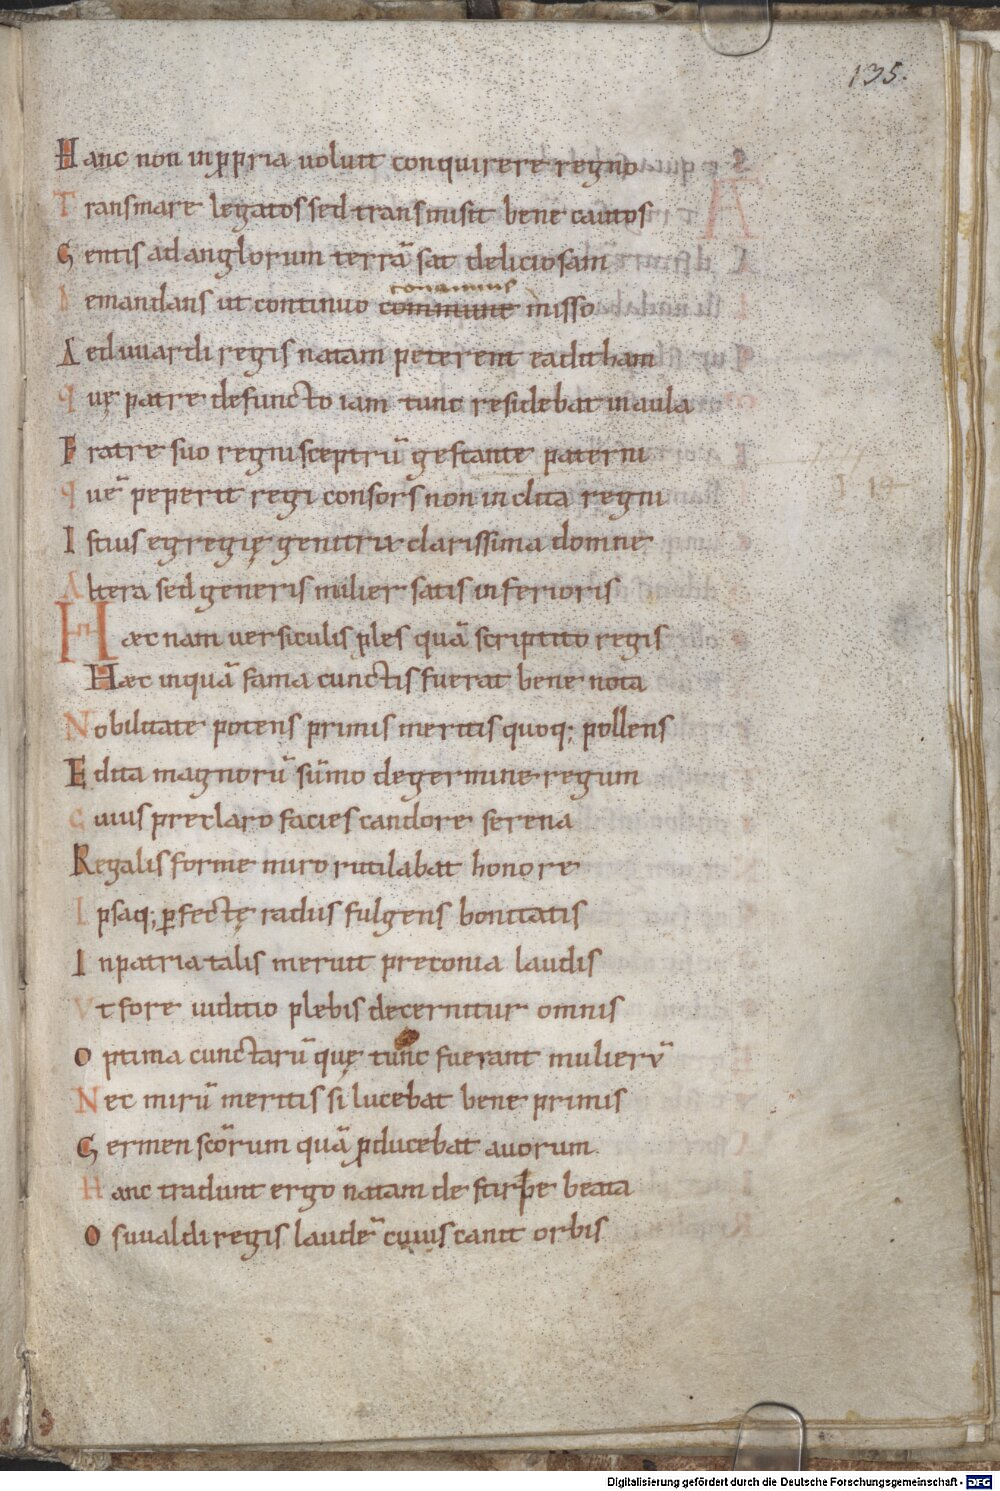 135.
Hanc non in ꝓpria uoluit conquirere regno
Transmare legatos sed transmisit bene cautos
Gentis ad anglorum terrā sat deliciosam
conamine
Demandans ut continuo commune misso
Aeduuardi regis natam peterent eaditham
Quę patre defuncto iam tunc residebat in aula
Fratre suo regni sceptrū gestante paterni
Quē peperit regi consors non inclita regni
Istius egregię genitrix clarissima domne
Altera sed generis mulier satis inferioris
Haec nam uersiculis ples quā scriptito regis
Haec inquā fama cunctis fuerat bene nota
Nobilitate potens primis meritis quoq; pollens
Edita magnorū sūmo de germine regum
Cuius preclaro facies candore serena
Regalis forme miro rutilabat honore
Ipsaq; ꝑfectę radiis fulgens bonitatis
In patria talis meruit preconia laudis
Vt fore iuditio plebis decernitur omnis
Optima cunctarū quę tunc fuerant mulierū
Nec mirū meritis si lucebat bene primis
Germen scōrum quā ꝓducebat auorum.
Hanc tradunt ergo natam de stirpe beata
Osuualdi regis laudē cuius canit orbis
Digitalisierung gefördert durch die Deutsche Forschungsgemeinschaft - DFG